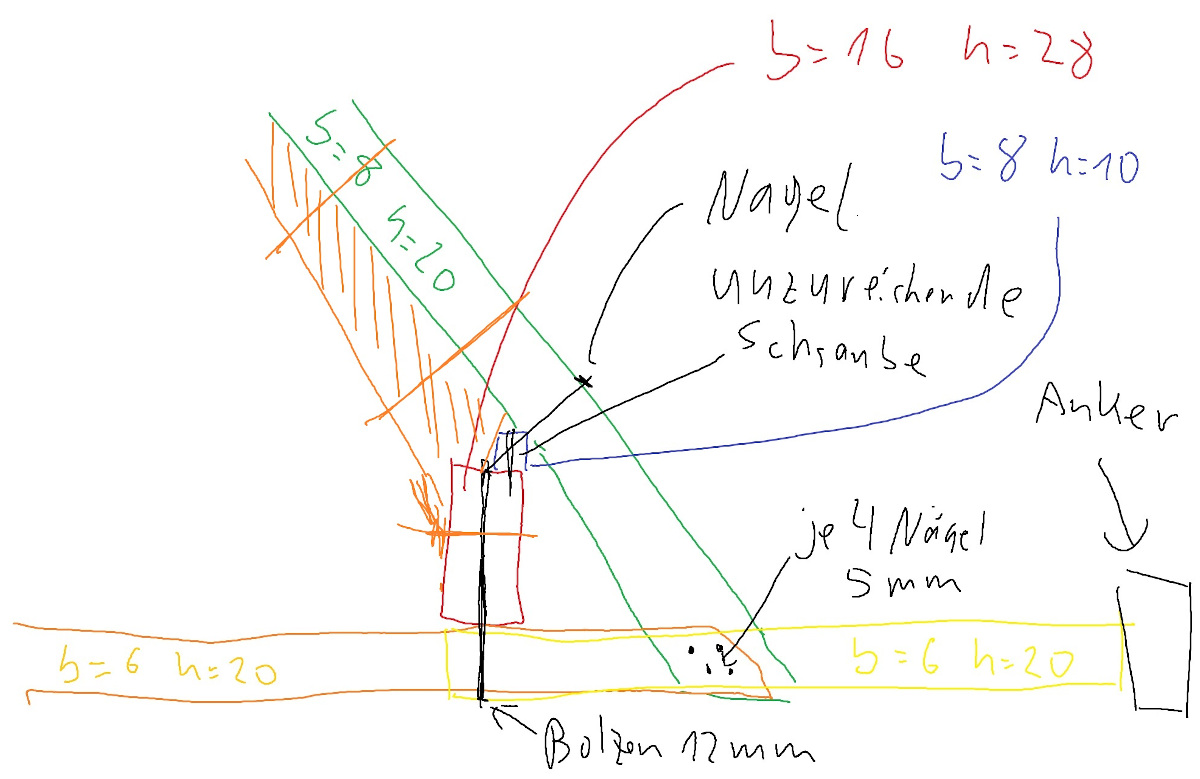 b=16 h=28
b=8 h=10
b=8 h=20
Nagel
unzureichende
Schraube
Anker
je 4 Nägel
5mm
b=6 h=20
b=6 h=20
Bolzen 12mm